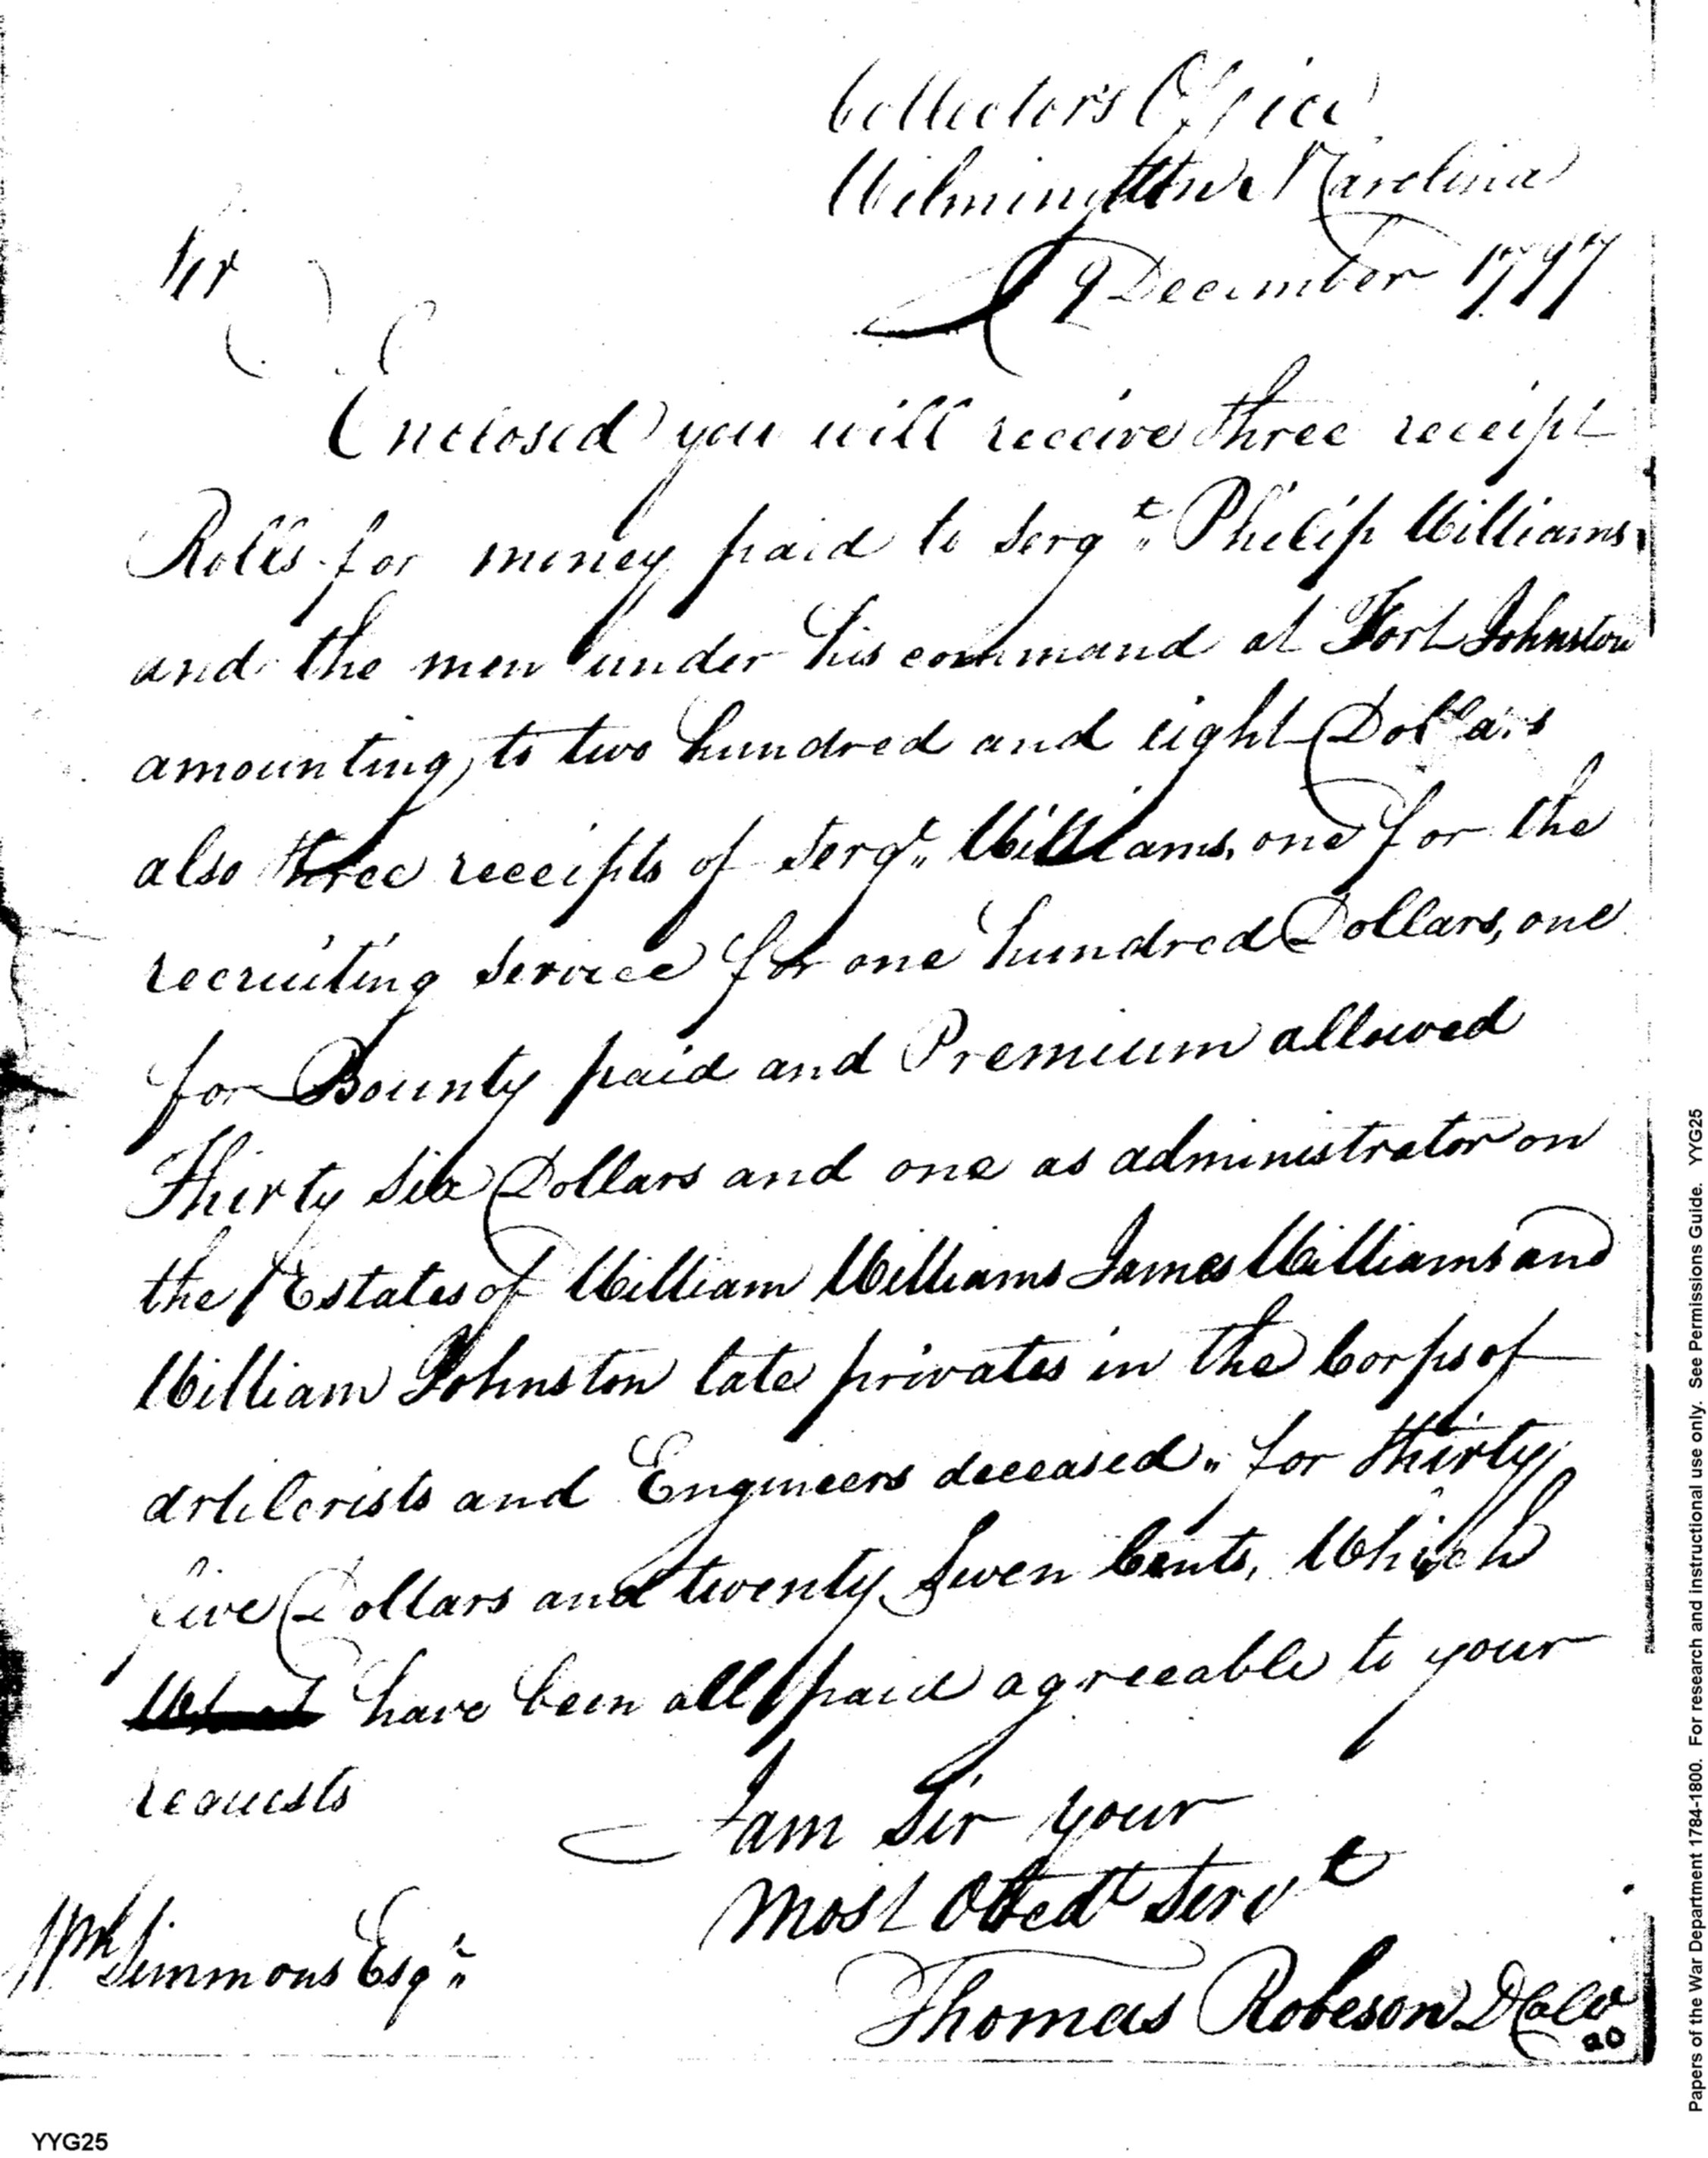 Collectors Office
Wilmington N Carolina
9 December 1797
Sir
Enclosed you will receive three receipt
Rolls for money paid to Sergt Philip Williams
and the men under his command at Fort Johnston
amounting to two hundred and eight Dollars
also three receipts of Sergt Williams, one for the
recruiting Service for one hundred Dollars, one
for Bounty paid and Premium allowed
Thirty Six Dollars and one as administrator on
the Estates of William Williams James Williams and
William Johnston late privates in the Corps of
artilerists and Engineers deceased for thirty
five Dollars and twenty Seven Cents, Which
have been all paid agreeable to your
requests
I am Sir your
most Obedt Servt
Wm Simmons Esqr
Thomas Robeson D Coll
20
YYG25
Papers of the War Department 1784-1800. For research and instructional use only. See Permissions Guide. YYG25